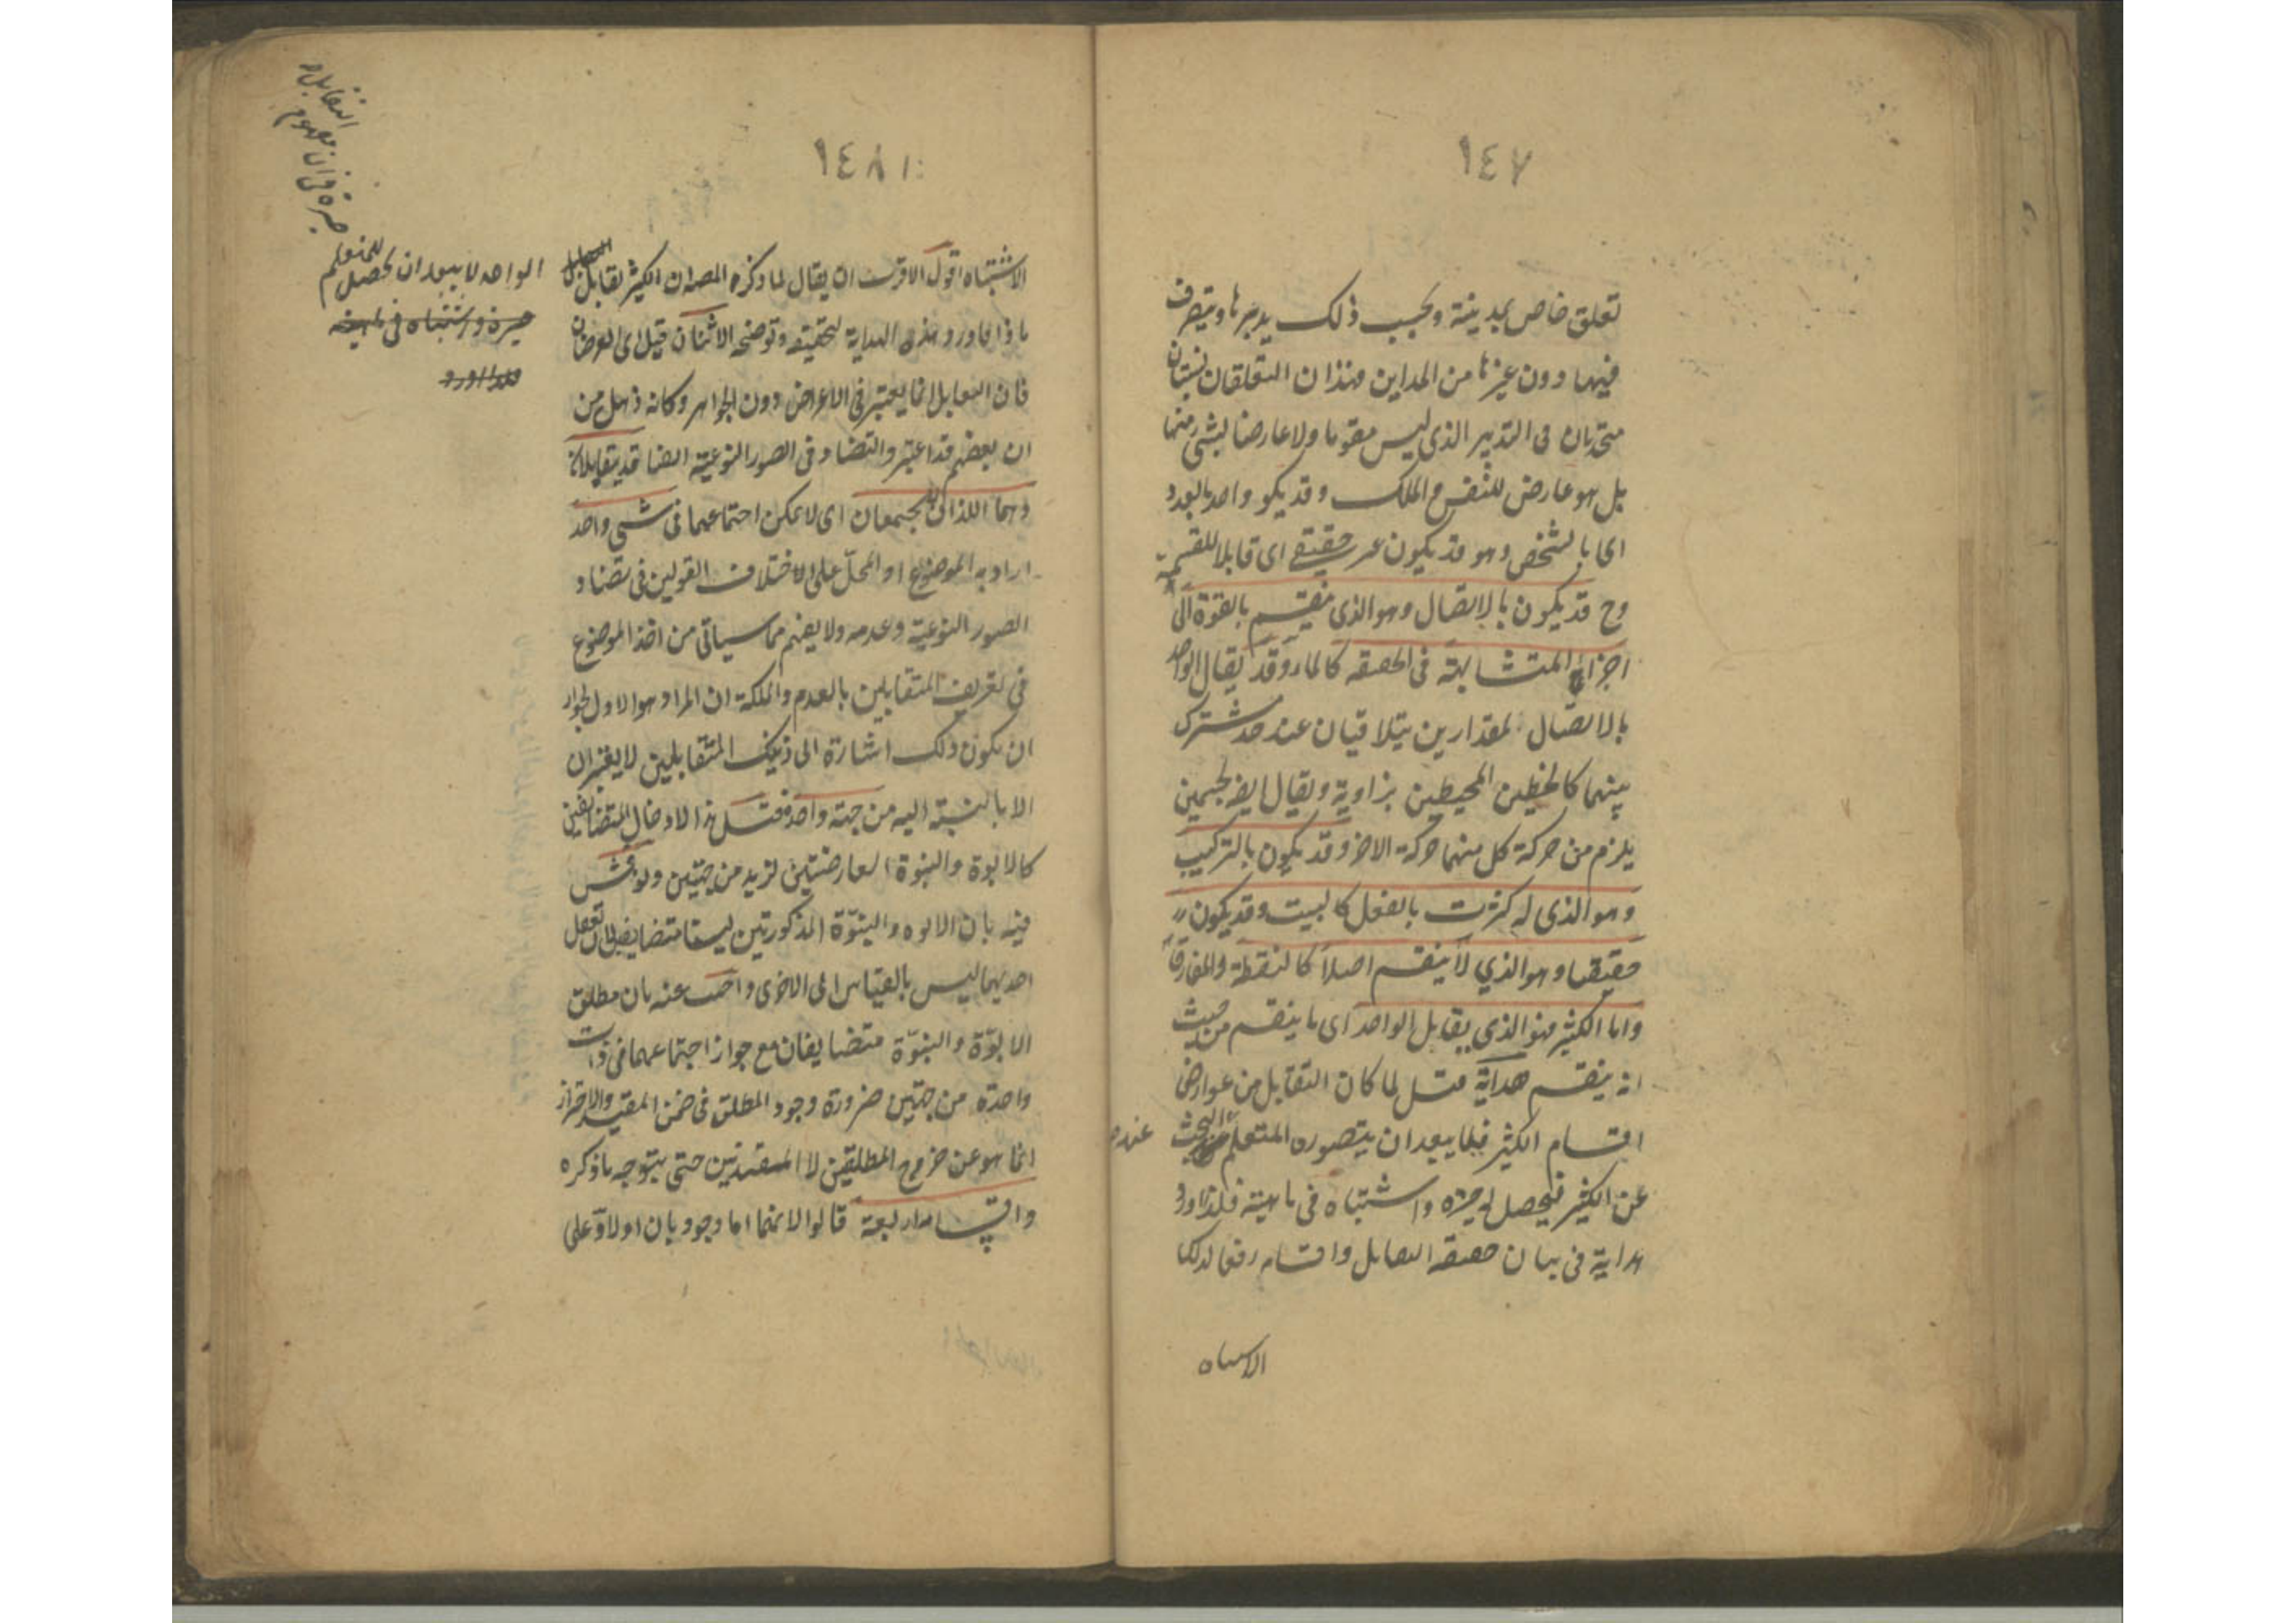 ١٤٧
تعلق خاص بمدينة وبحسب ذلك يدبرها ويتصرف
فيها دون غيرها من المداين فهذان التعلقان نسبتان
متحدتان فى التدبير الذى ليس مقوما ولا عارضا لشئ منهما
بل هو عارض للنفس والملك وقد يكو واحد بالعدد
اى بالشخص وهو قد يكون غير حقيقے اى قابلا للقسمة
وح قد يكون بالاتصال وهو الذى ينقسم بالقوة الى
اجزاء المتشابهة فى الحقيقه كالماء وقد يقال الواحد
بالاتصال لمقدارين يتلاقيان عند حد مشترك
بينهما كالخطين المحيطين بزاوية ويقال ايضا لجسمين
يلزم من حركة كل منهما حركة الاخر وقد يكون بالتركيب
وهو الذى له كثرت بالفعل كالبيت وقد يكون
حقيقيا وهو الذي لا ينقسم اصلا كالنقطة والمفارقا
واما الكثير فهو الذي يقابل الواحد اى ما ينقسم من حيث
انه ينقسم هداية قيل لما كان التقابل من عوارض
اقسام الكثير فلما يبعد ان يتصوره المتعلم البحث عند
عن الكثير فيحصل له حيرة واشتباه فى ماهيته فلذا اورد
هداية فى بيان حقيقه التقابل واقسامه رفعا لذلك
الاشتباه
١٤٨
الاشتباه اقول الاقرب ان يقال لما ذكره المصـ ان الكثير تقابل
ماذا فاورد هذه الهداية لتحقيقه وتوضحه الاثنان قيل اى العرضان
فان التقابل انما يعتبر فى الاعراض دون الجواهر وكانه ذهل من
ان بعضهم قد اعتبر والتضاد فى الصور النوعية ايضا قد يتقابلان
وهما اللذان لا يجتمعان اى لا يمكن اجتماعهما فى شئ واحد
اراد به الموضوع او المحلّ على الاختلاف القولين فى تضاد
الصور النوعية وعدمه ولا يفهم مما سياتى من اخذ الموضوع
فى تعريف المتقابلين بالعدم والملكة ان المراد هو الاول لجواز
ان يكون ذلك اشارة الى ذينك المتقابلين لا يعتبران
الا بالنسبة اليه من جهة واحدة قيل هذا لادخال المتضايفين
كالابوة والبنوة العارضتين لزيد من جهتين ونوقش
فيه بان الابوه والبنوّة المذكورتين ليستا متضايفين لان تعقل
احديهما ليس بالقياس الى الاخرى واجيب عنه بان مطلق
الابوّة والبنوّة متضايفان مع جواز اجتماعهما فى ذات
واحدة من جهتين ضرورة وجود المطلق فى ضمن المقيد والاحتراز
انما هو عن خروج المطلقين لا المقيدين حتى يتوجه ما ذكره
واقسامه اربعة قالوا لانهما اما وجوديان اولا وعلى
التقابل
حيرة فى ان مفهوم
الواحد لا يبعد ان يحصل للمتعلم
حيرة واشتباه فى ماهيته
فلذا اورد